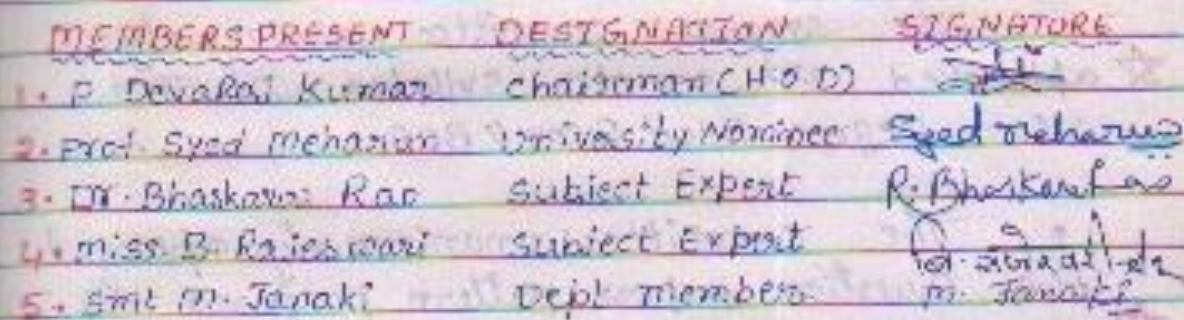 MEMBERS PRESENT DESIGNATION SIGNATURE
1. P DevaRaj Kumar Chairman (H O D)
2. Prof. Syed Meharun University Nominee Syed Meharun
3. Dr. Bhaskara Rao Subject Expert R. Bhaskara Rao
4. Miss. B. Rajeswari Subject Expert
5. Smt M. Janaki Dept member M. Janaki